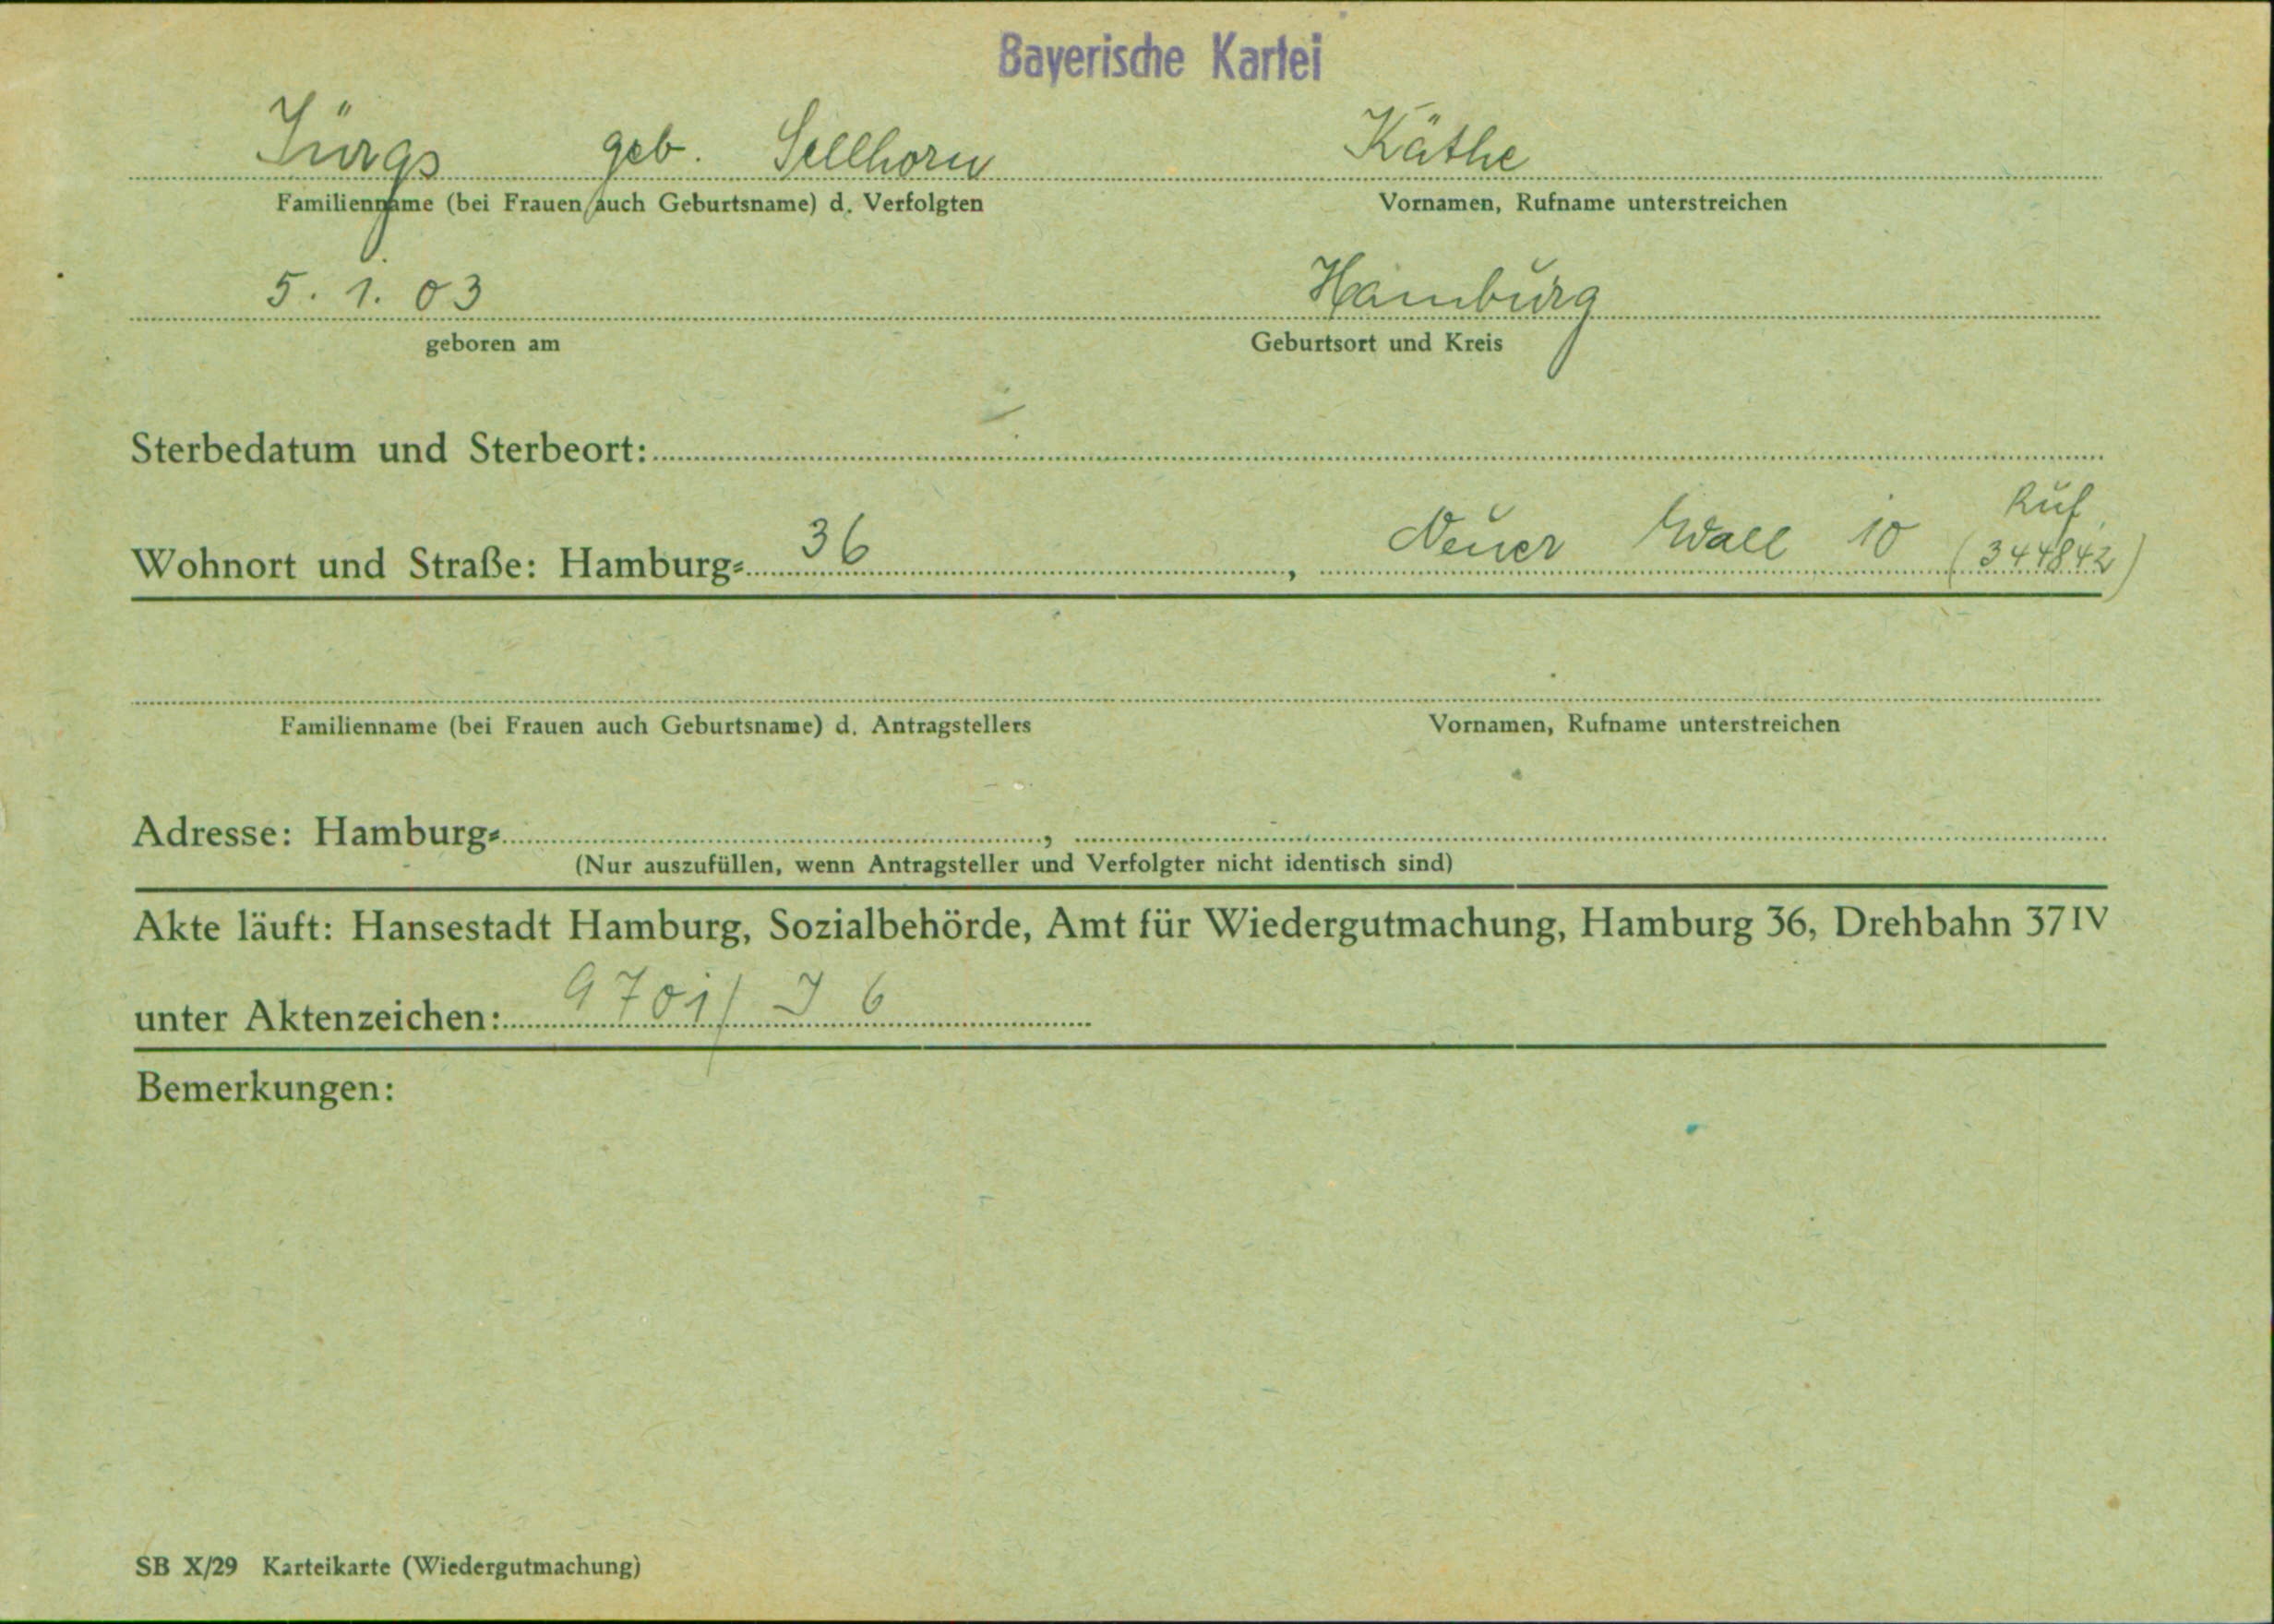 Bayerische Kartei
Jürgs geb. Sellhorn Käthe
Familienname (bei Frauen auch Geburtsname) d. Verfolgten Vornamen, Rufname unterstreichen
5. 1. 03 Hamburg
geboren am Geburtsort und Kreis
Sterbedatum und Sterbeort:
Ruf
Wohnort und Straße: Hamburg- 36, Neuer Wall 10 (344842)
Familienname (bei Frauen auch Geburtsname) d. Antragstellers Vornamen, Rufname unterstreichen
Adresse: Hamburg- ,
(Nur auszufüllen, wenn Antragsteller und Verfolgter nicht identisch sind)
Akte läuft: Hansestadt Hamburg, Sozialbehörde, Amt für Wiedergutmachung, Hamburg 36, Drehbahn 37 IV
unter Aktenzeichen: 9701/ J 6
Bemerkungen:
SB X/29 Karteikarte (Wiedergutmachung)